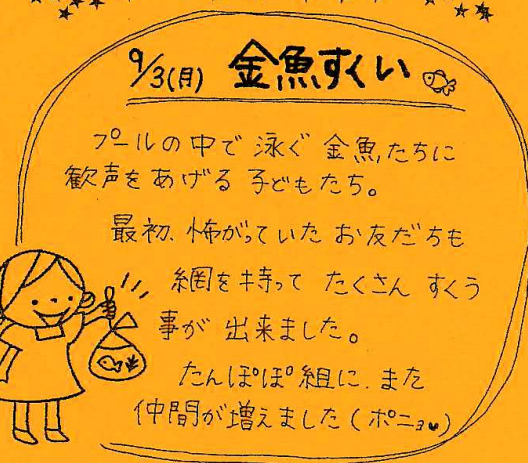 9/3(月) 金魚すくい
プールの中で泳ぐ金魚たちに
歓声をあげる子どもたち。
最初、怖がっていたお友だちも
網を持ってたくさんすくう
事が出来ました。
たんぽぽ組に、また
仲間が増えました(ポニョ♥)